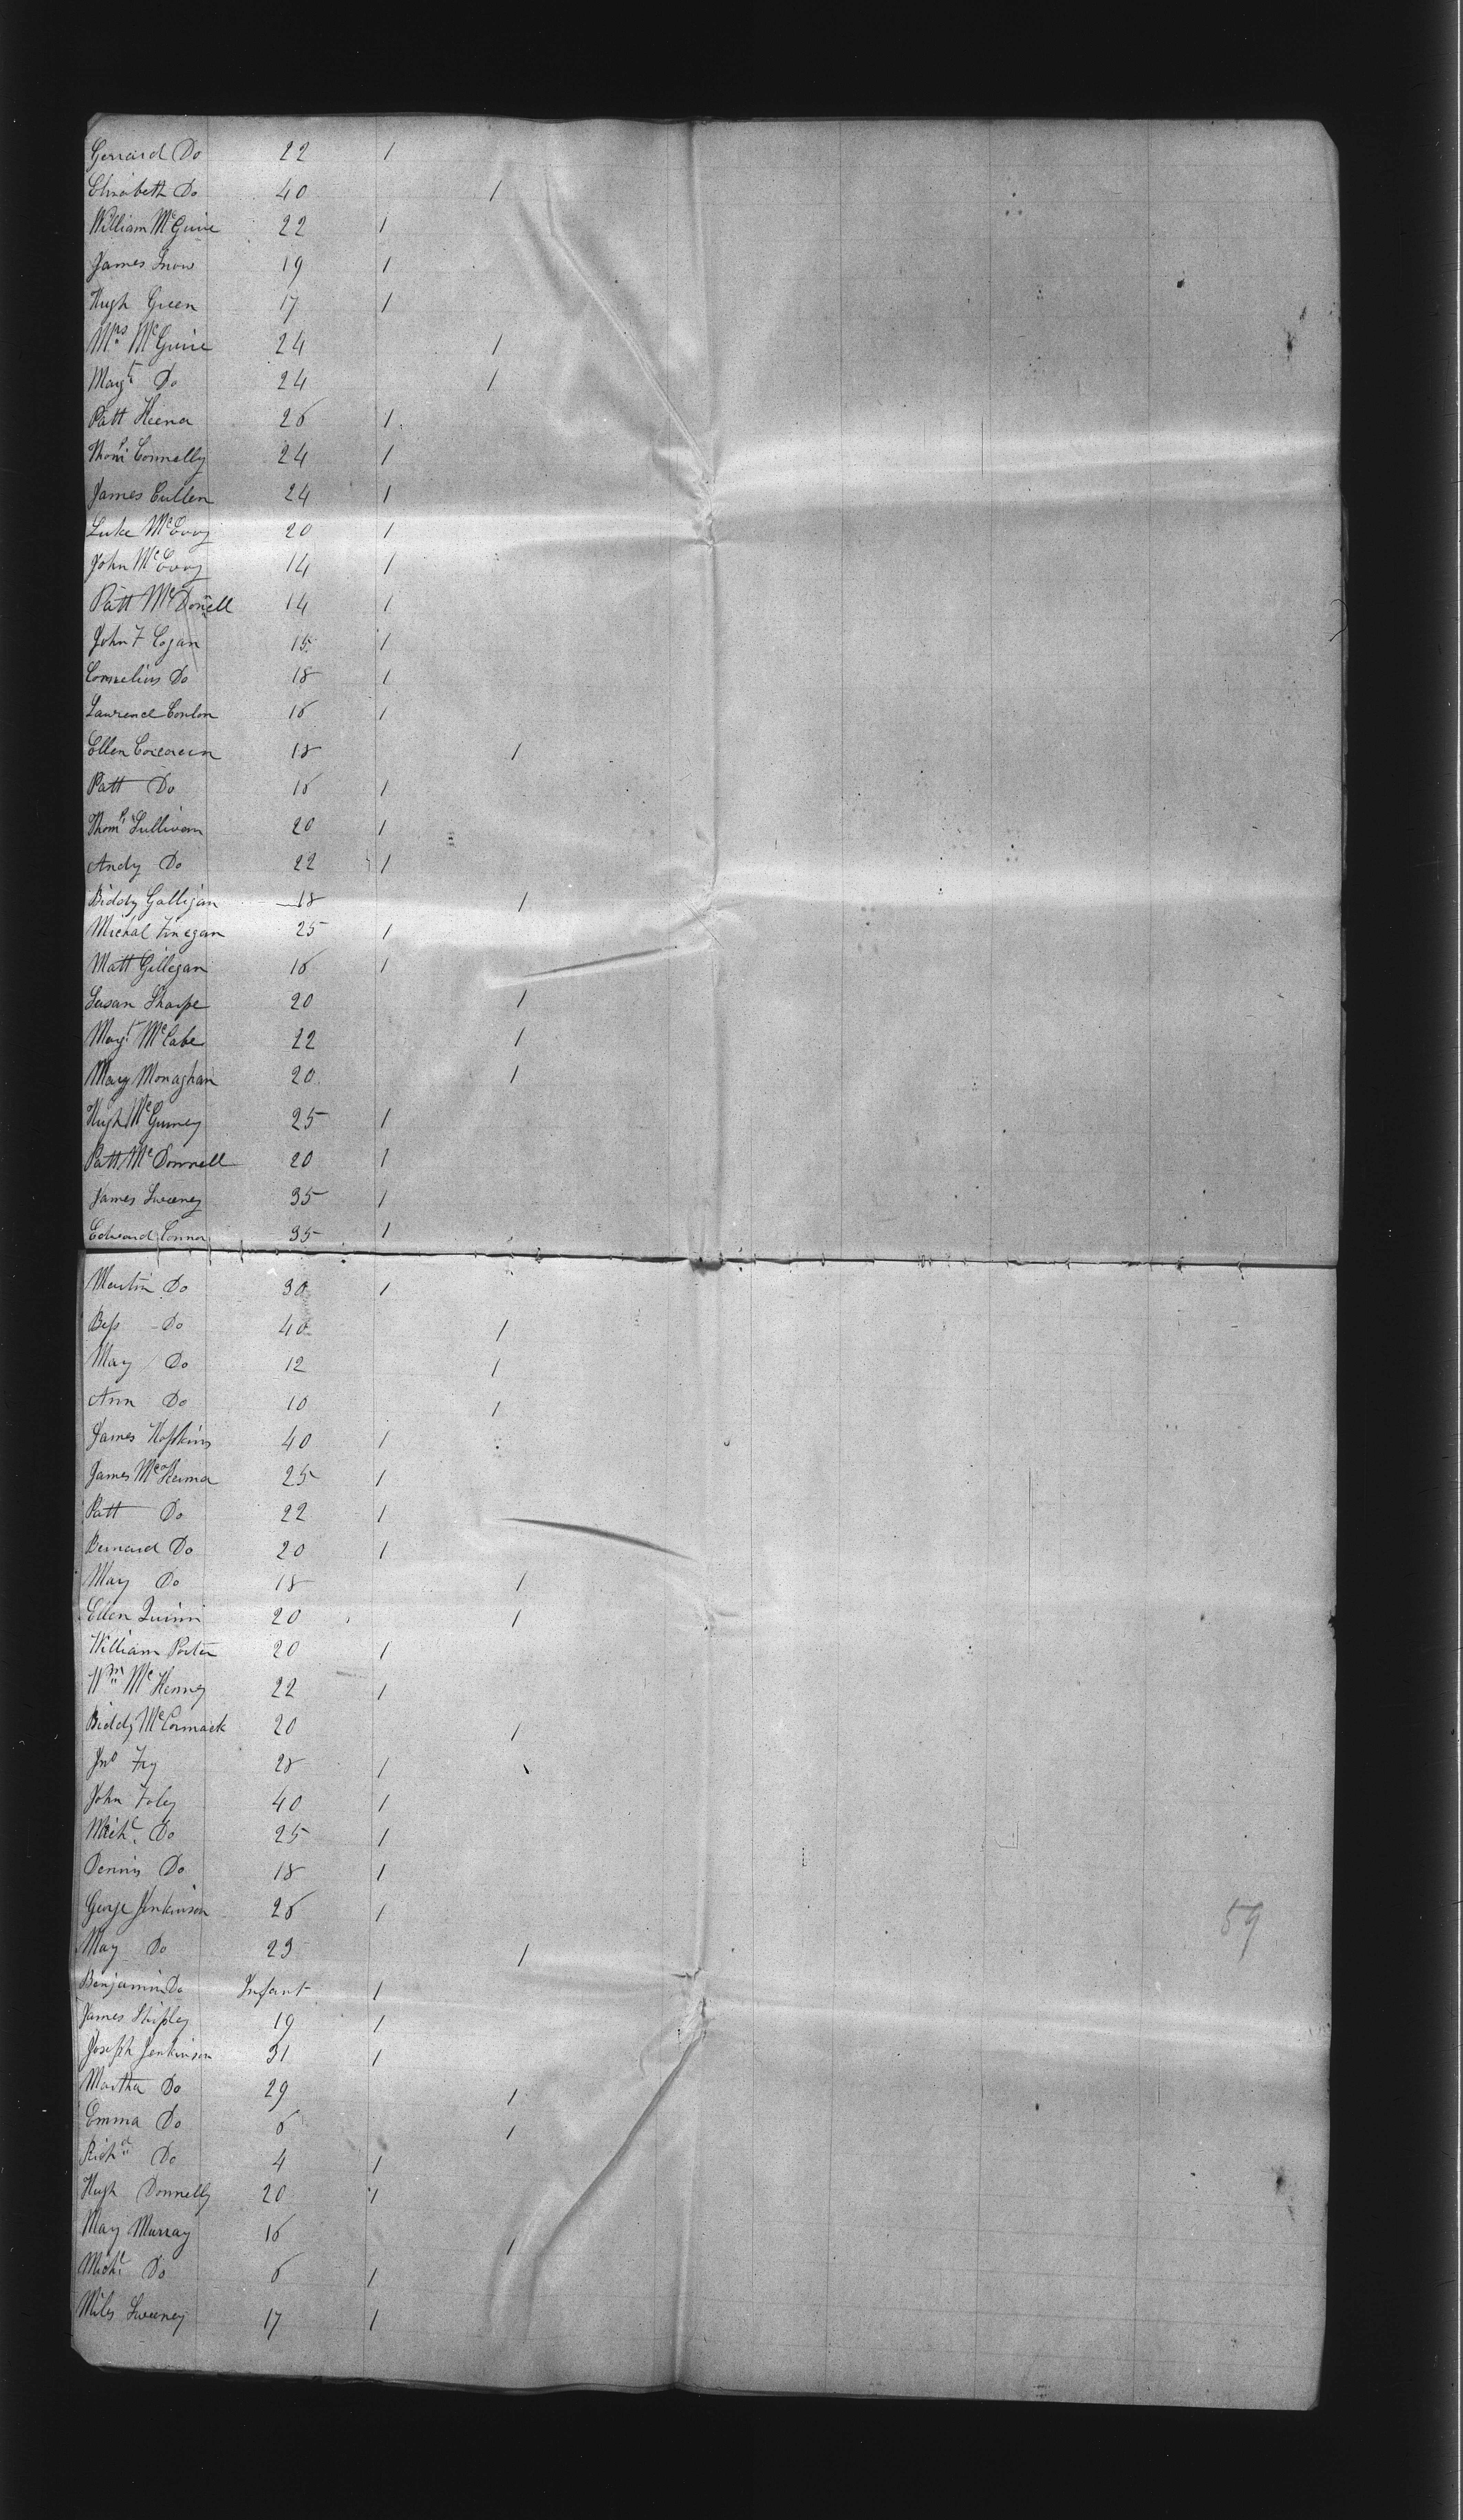 Gerrard Do 22 1
Elizabeth Do 40 1
William McGuire 22 1
James Snow 19 1
Hugh Green 17 1
Mrs McGuire 24 1
Magt Do 24 1
Patt Keena 26 1
Thoms Connelly 24 1
James Cullen 24 1
Luke McEvoy 20 1
John McEvoy 14 1
Patt McDonell 14 1
John F Cogan 15 1
Cornelius Do 18 1
Lawrence Conlon 16 1
Ellen Corcoran 18 1
Patt Do 16 1
Thoms Sullivan 20 1
Andy Do 22 1
Biddy Galligan 18 1
Michal Finegan 25 1
Matt Gillegan 16 1
Susan Sharpe 20 1
Magt McCabe 22 1
Mary Monaghan 20 1
Hugh 25 1
Patt McDonnell 20 1
James Sweeney 35 1
Edward Connor 35 1
Martin Do 30 1
Bess Do 40 1
Mary Do 12 1
Ann Do 10 1
James Hopkins 40 1
James 25 1
Patt Do 22 1
Bernard Do 20 1
Mary Do 18 1
Ellen Quinn 20 1
William Porter 20 1
Wm McKenney 22 1
Biddy McCormack 20 1
Jno Fry 28 1
John Foley 40 1
Michl Do 25 1
Dennis Do 18 1
George Jenkinson 26 1
Mary Do 23 1
Benjamin Do Infant 1
James Shipley 19 1
Joseph Jenkinson 31 1
Martha Do 29 1
Emma Do 6 1
Richd Do 4 1
Hugh Donnelly 20 1
Mary Murray 16 1
Michl Do 6 1
Miles Sweeney 17 1
59